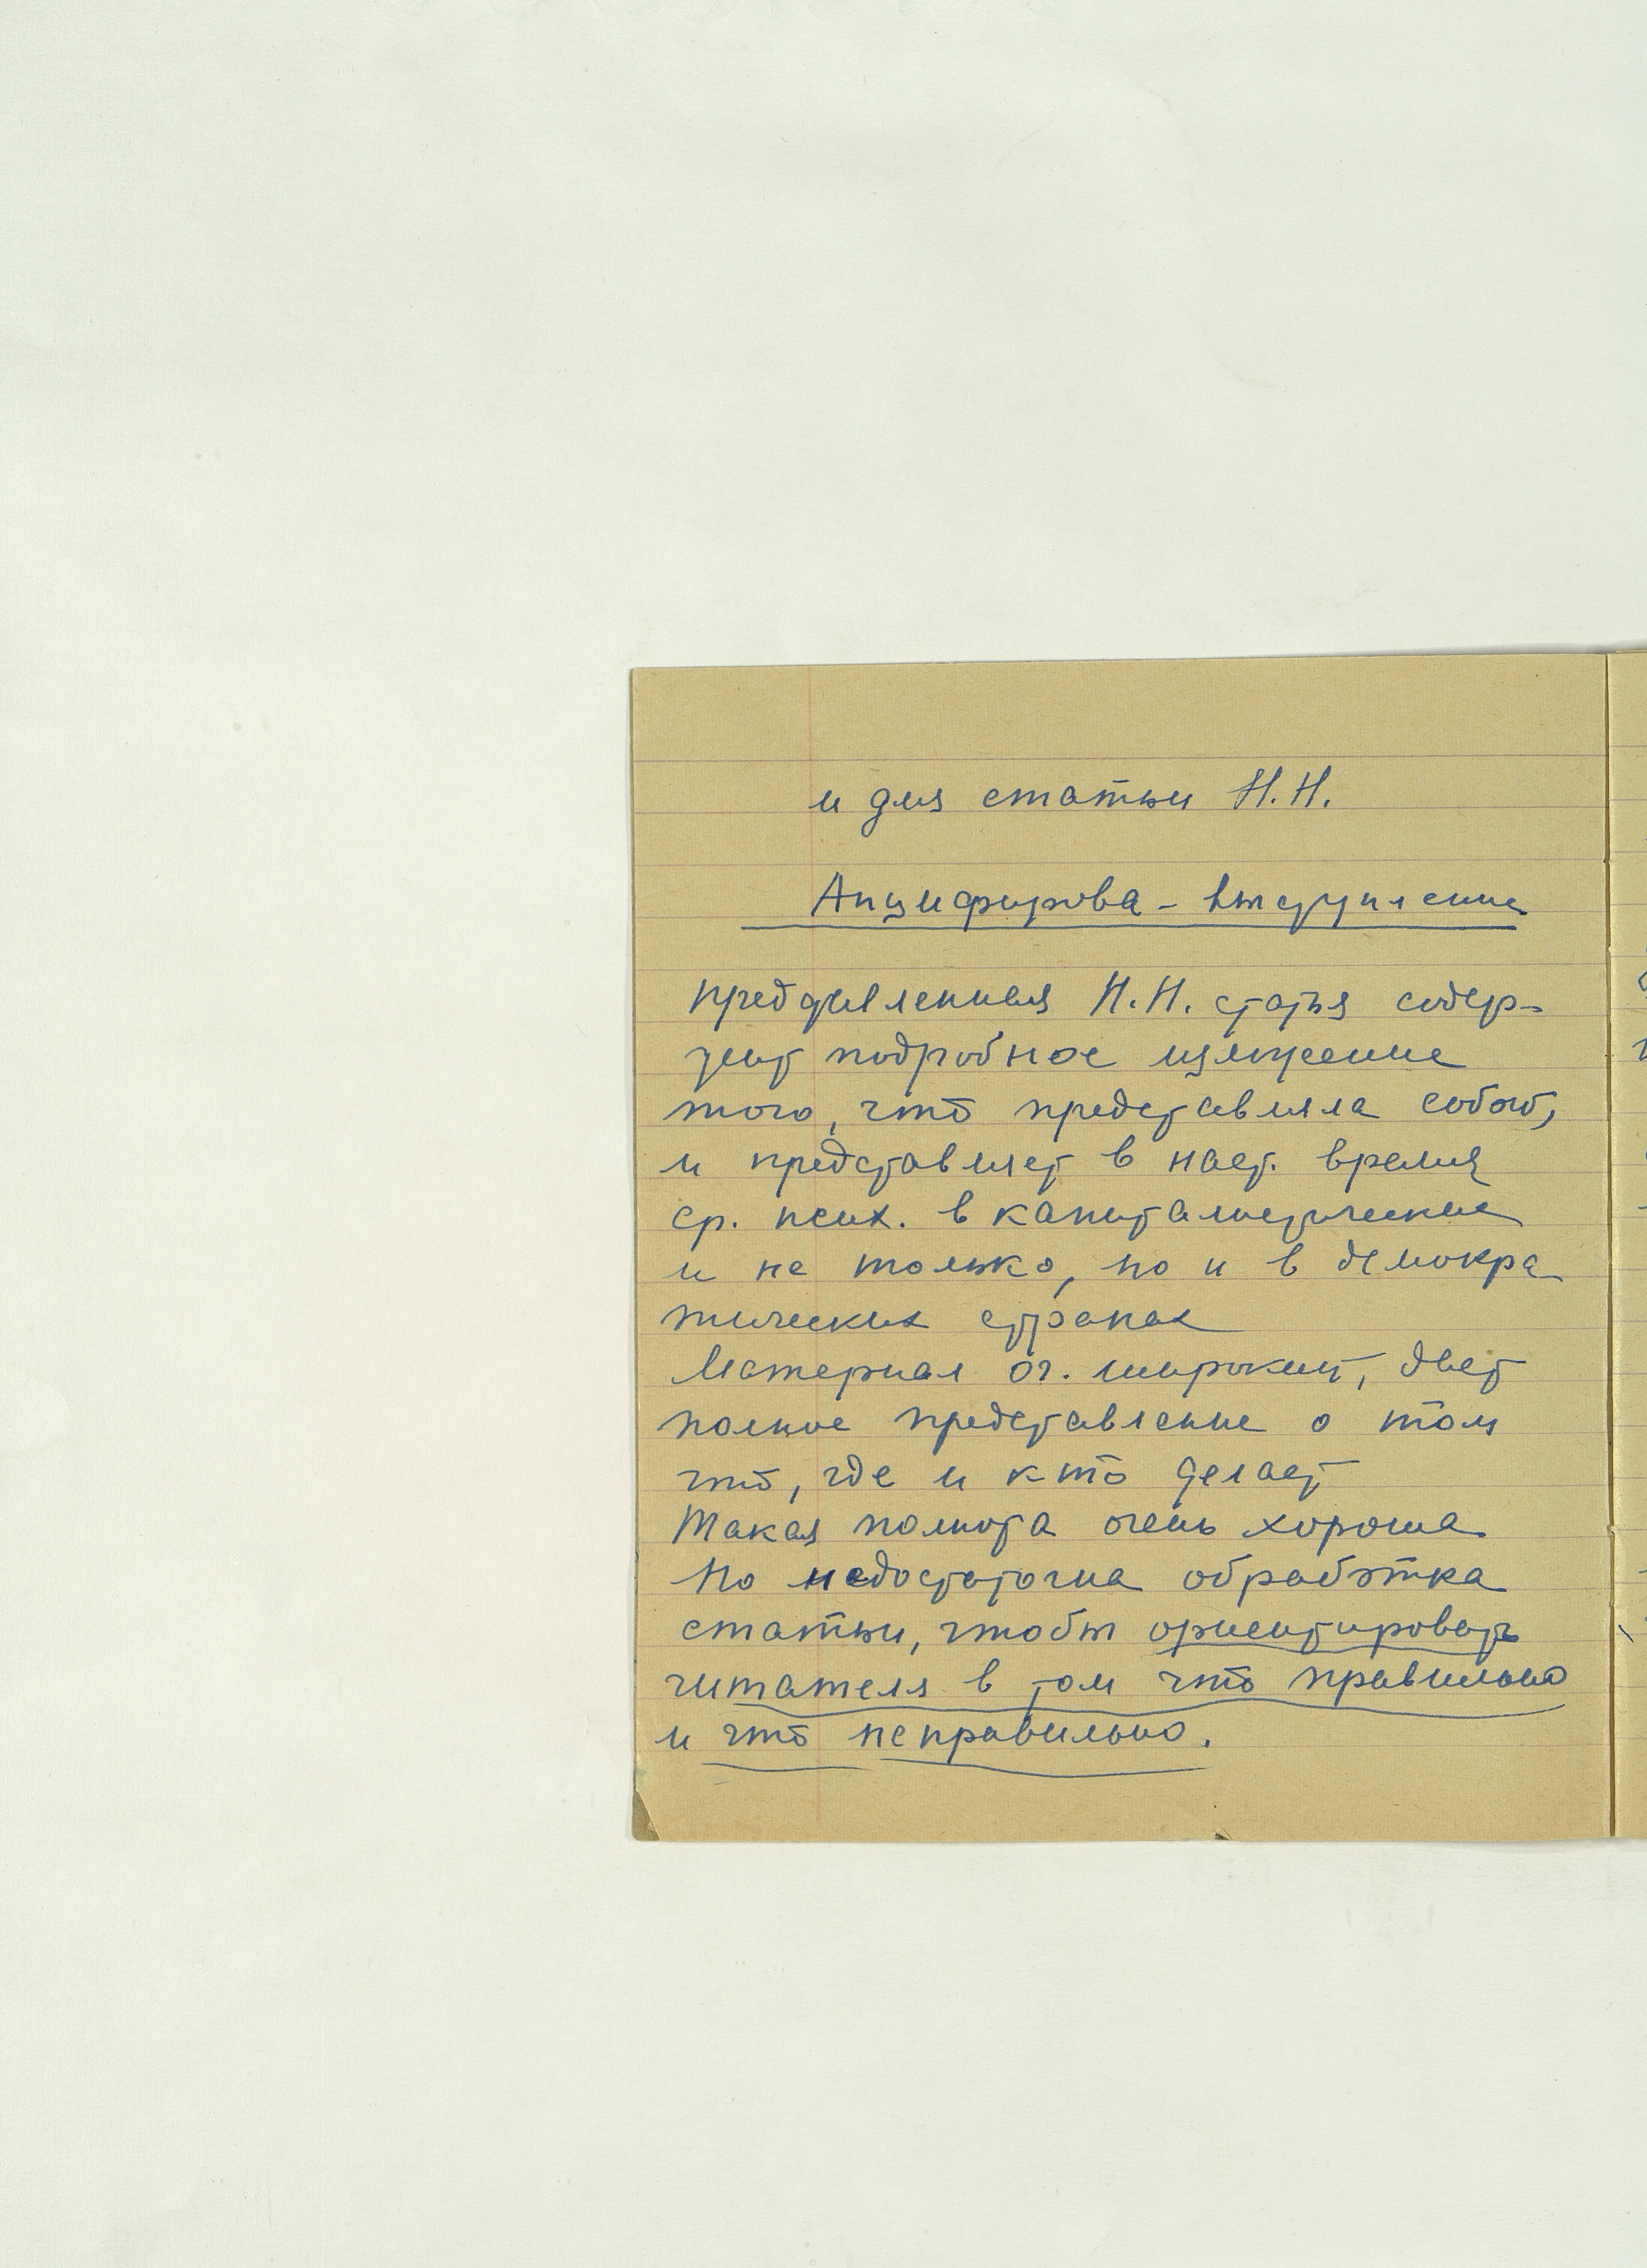 и для статьи Н.Н.
Анцыферова – выступление
представленная Н.Н. статья содер-
жит подробное изложение
того, что представляла собой,
и представляет в наст. время
ср. псих. в капиталистические
и не только, но и в демокра
тических странах
Материал оч. широкий, дает
полное представление о том
что, где и кто делает
Такая полнота очень хороша
Но недостаточна обработка
статьи, чтобы ориентировать
читателя в том что правильно
и что неправильно.